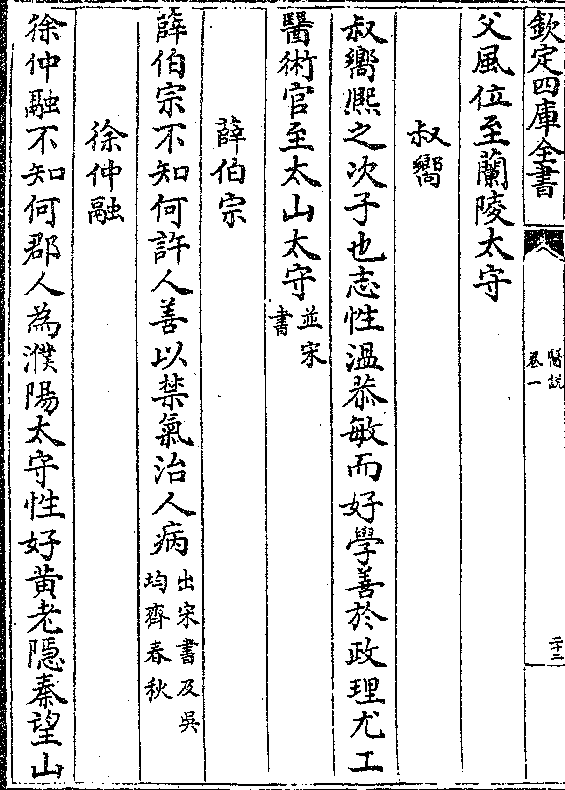 欽定四庫全書
醫說
卷一
二十二
父風位至蘭陵太守
叔嚮
叔嚮熈之次子也志性温恭敏而好學善於政理尤工
醫術官至太山太守並宋
書
薛伯宗
薛伯宗不知何許人善以禁氣治人病出宋書及吳
均齊春秋
徐仲融
徐仲融不知何郡人為濮陽太守性好黄老隱秦望山